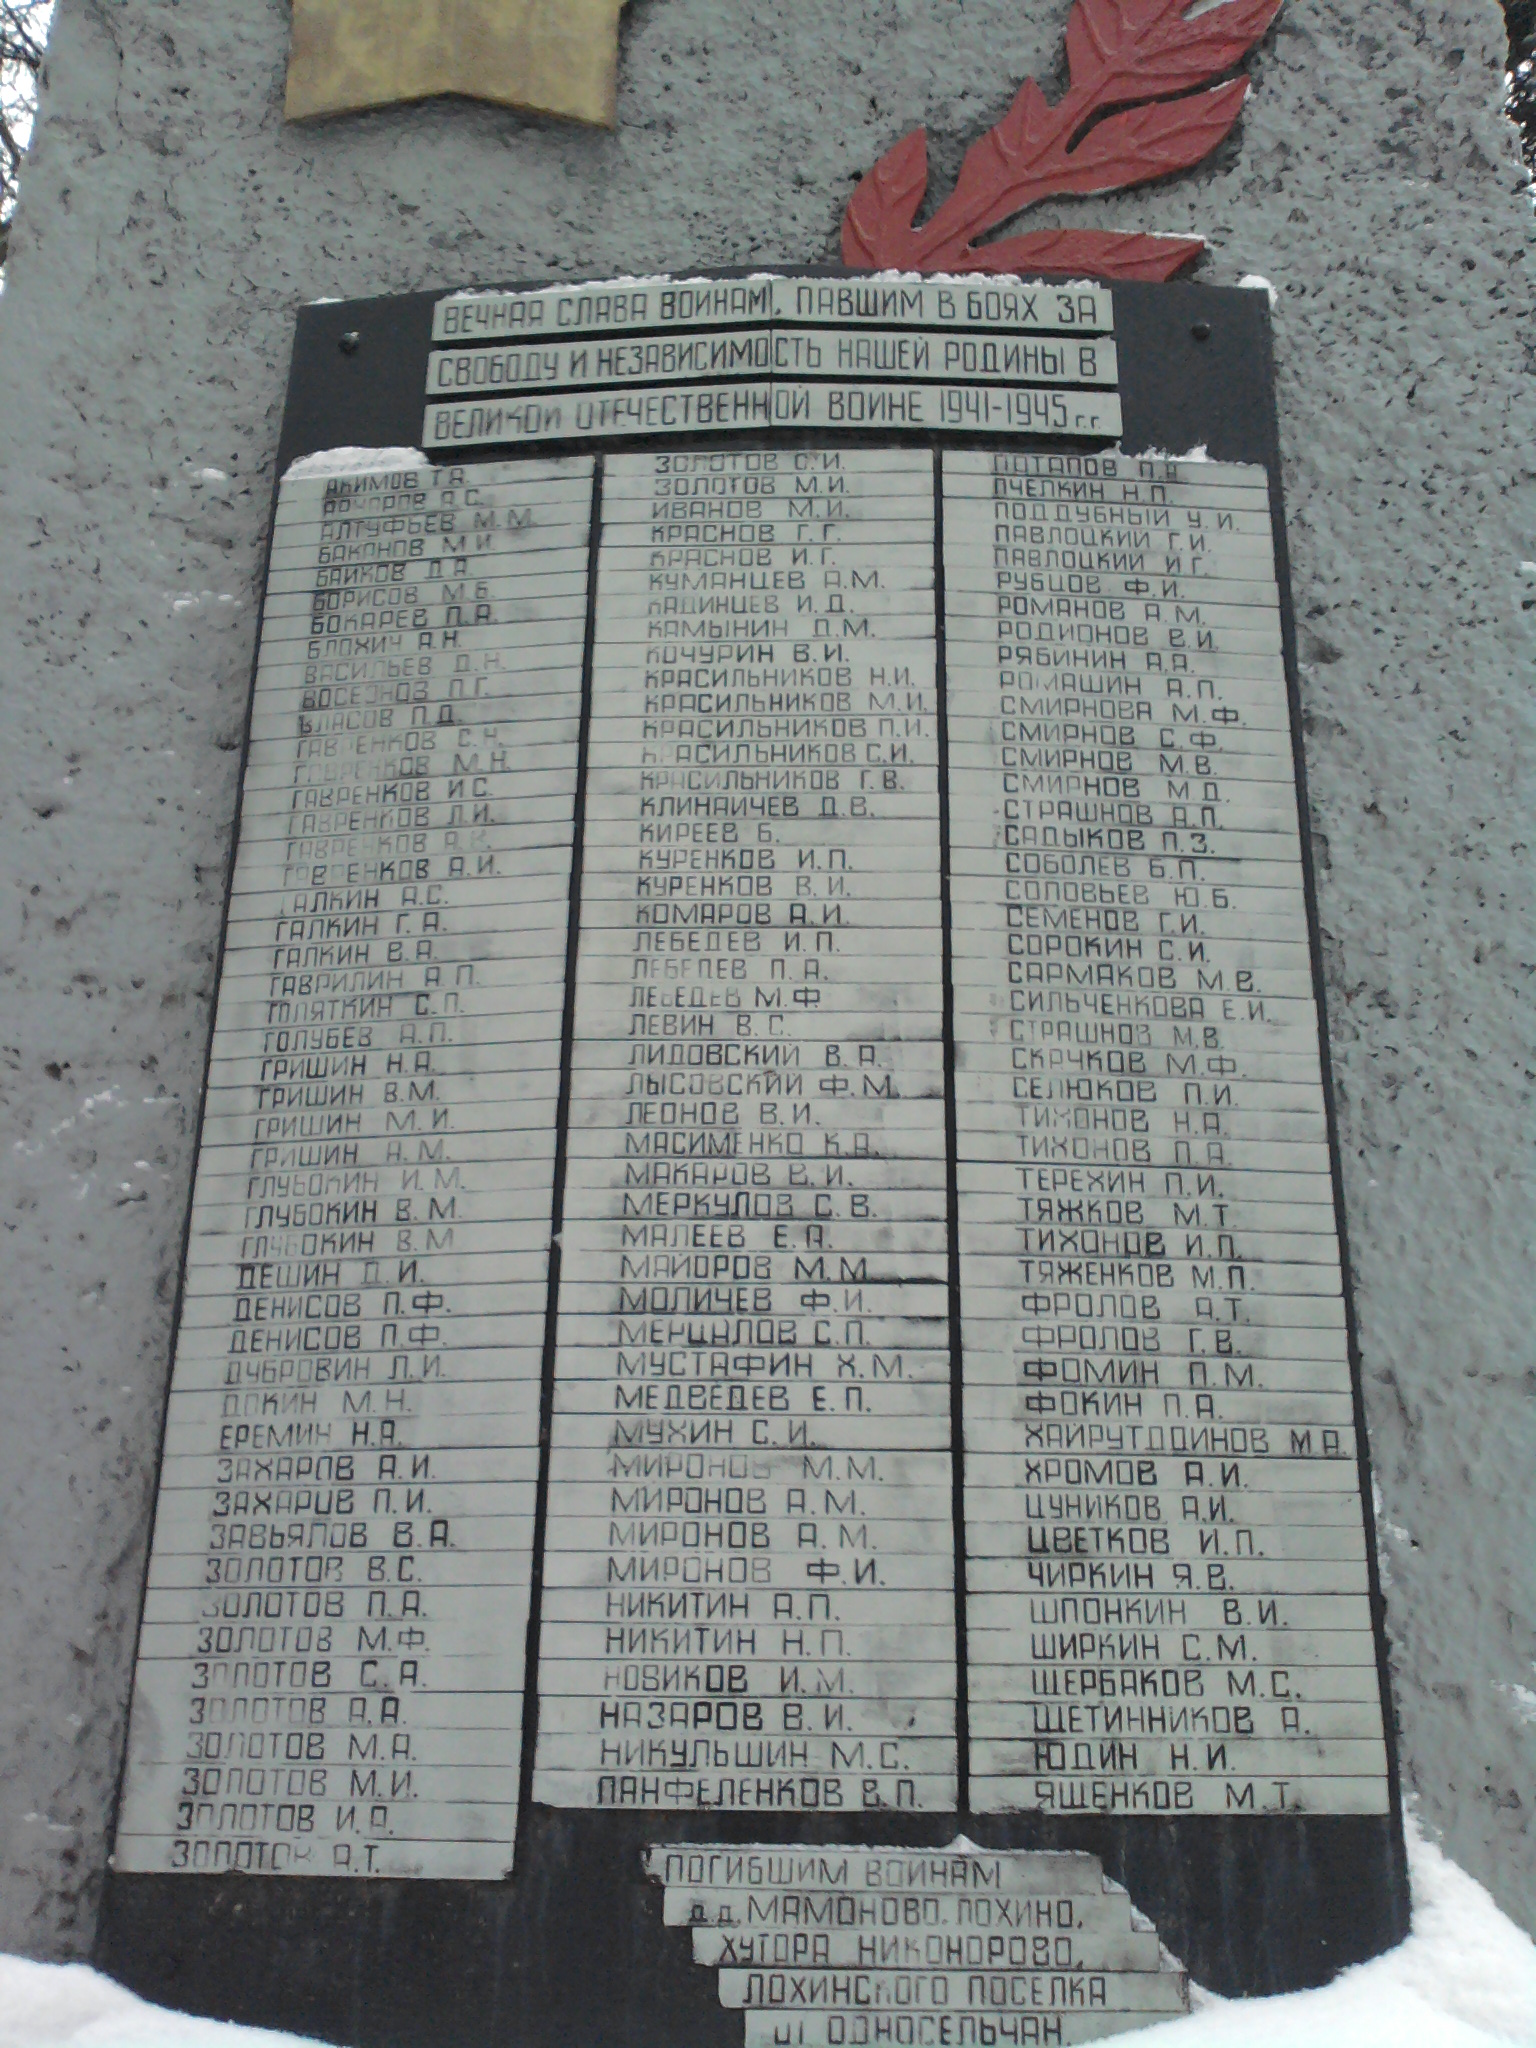 ВЕЧНАЯ СЛАВА ВОИНАМ, ПАВШИМ В БОЯХ ЗА
СВОБОДУ И НЕЗАВИСИМОСТЬ НАШЕЙ РОДИНЫ В
ВЕЛИКОЙ ОТЕЧЕСТВЕННОЙ ВОЙНЕ 1941-1945 г.г.
АКИМОВ Т.А.
А.С.
АЛТУФЬЕВ М.М.
БАКАНОВ М.И.
БАЙКОВ Д.А.
БОРИСОВ М.Б.
БОКАРЕВ П.А.
БЛОХИН А.Н.
ВАСИЛЬЕВ Д.Н.
П.Г.
ВЛАСОВ П.Д.
ГАВРЕНКОВ С.Н.
ГАВРЕНКОВ М.Н.
ГАВРЕНКОВ И.С.
ГАВРЕНКОВ Л.И.
ГАВРЕНКОВ
ГАВРЕНКОВ А.И.
ГАЛКИН А.С.
ГАЛКИН Г.А.
ГАЛКИН В.А.
ГАВРИЛИН А.П.
ГОЛЯТКИН С.П.
ГОЛУБЕВ А.П.
ГРИШИН Н.А.
ГРИШИН В.М.
ГРИШИН М.И.
ГРИШИН А.М.
ГЛУБОКИН И.М.
ГЛУБОКИН В.М.
ГЛУБОКИН В.М
ДЕШИН Д.И.
ДЕНИСОВ П.Ф.
ДЕНИСОВ П.Ф.
ДУБРОВИН Л.И.
ДОКИН М.Н.
ЕРЕМИН Н.А.
ЗАХАРОВ А.И.
ЗАХАРОВ П.И.
ЗАВЬЯЛОВ В.А.
ЗОЛОТОВ В.С.
ЗОЛОТОВ П.А.
ЗОЛОТОВ М.Ф.
ЗОЛОТОВ С.А.
ЗОЛОТОВ А.А.
ЗОЛОТОВ М.А.
ЗОЛОТОВ М.И.
ЗОЛОТОВ И.А.
ЗОЛОТОВ А.Т.
ЗОЛОТОВ С.И.
ЗОЛОТОВ М.И.
ИВАНОВ М.И.
КРАСНОВ Г.Г.
КРАСНОВ И.Г.
КУМАНЦЕВ А.М.
КАДИНЦЕВ И.Д.
КАМЫНИН Д.М.
КОЧУРИН В.И.
КРАСИЛЬНИКОВ Н.И.
КРАСИЛЬНИКОВ М.И.
КРАСИЛЬНИКОВ П.И.
КРАСИЛЬНИКОВ С.И.
КРАСИЛЬНИКОВ Г.В.
КЛИНАИЧЕВ Д.В.
КИРЕЕВ Б.
КУРЕНКОВ И.П.
КУРЕНКОВ В.И.
КОМАРОВ А.И.
ЛЕБЕДЕВ И.П.
ЛЕБЕДЕВ П.А.
ЛЕБЕДЕВ М.Ф
ЛЕВИН В.С.
ЛИДОВСКИЙ В.А.
ЛЫСОВСКИЙ Ф.М.
ЛЕОНОВ В.И.
МАСИМЕНКО К.А.
МАКАРОВ В.И.
МЕРКУЛОВ С.В.
МАЛЕЕВ Е.А.
МАЙОРОВ М.М.
МОЛИЧЕВ Ф.И.
МЕРЦАЛОВ С.П.
МУСТАФИН Х.М.
МЕДВЕДЕВ Е.П.
МУХИН С.И.
МИРОНОВ М.М.
МИРОНОВ А.М.
МИРОНОВ А.М.
МИРОНОВ Ф.И.
НИКИТИН А.П.
НИКИТИН Н.П.
НОВИКОВ И.М.
НАЗАРОВ В.И.
НИКУЛЬШИН М.С.
ПАНФЕЛЕНКОВ В.П.
ПОТАПОВ П.А
ПЧЕЛКИН Н.П.
ПОДДУБНЫЙ У.И.
ПАВЛОЦКИЙ Г.И.
ПАВЛОЦКИЙ И.Г.
РУБЦОВ Ф.И.
РОМАНОВ А.М.
РОДИОНОВ В.И.
РЯБИНИН А.А.
РОМАШИН А.П.
СМИРНОВА М.Ф.
СМИРНОВ С.Ф.
СМИРНОВ М.В.
СМИРНОВ М.Д.
СТРАШНОВ А.П.
САДЫКОВ П.З.
СОБОЛЕВ Б.П.
СОЛОВЬЕВ Ю.Б.
СЕМЕНОВ Г.И.
СОРОКИН С.И.
САРМАКОВ М.В.
СИЛЬЧЕНКОВА Е.И.
СТРАШНОВ М.В.
СКАЧКОВ М.Ф.
СЕЛЮКОВ П.И.
ТИХОНОВ Н.А.
ТИХОНОВ П.А.
ТЕРЕХИН П.И.
ТЯЖКОВ М.Т.
ТИХОНОВ И.П.
ТЯЖЕНКОВ М.П.
ФРОЛОВ А.Т.
ФРОЛОВ Г.В.
ФОМИН П.М.
ФОКИН П.А.
ХАЙРУТДДИНОВ М.А.
ХРОМОВ А.И.
ЦУНИКОВ А.И.
ЦВЕТКОВ И.П.
ЧИРКИН Я.В.
ШПОНКИН В.И.
ШИРКИН С.М.
ЩЕРБАКОВ М.С.
ЩЕТИННИКОВ А.
ЮДИН Н.И.
ЯЩЕНКОВ М.Т.
ПОГИБШИМ ВОИНАМ
д.д. МАМОНОВО, ЛОХИНО,
ХУТОРА НИКОНОРОВО,
ЛОХИНСКОГО ПОСЕЛКА
ОТ ОДНОСЕЛЬЧАН.